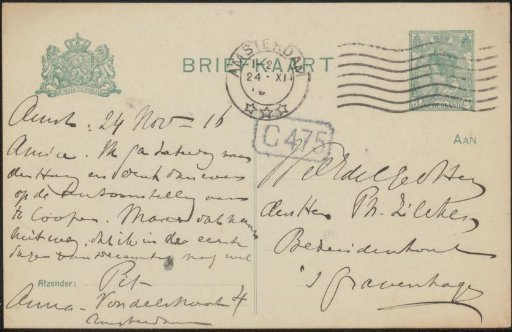 BRIEFKAART
AMSTERDAM
24 XI
C 475
AAN
Amst. 24 Nov - 16
Amice. Ik ga Zaterdag naar
den Haag en
op de Tentoonstelling
te
uit weg, dat ik in de eerste
dagen van December nog wel
Afzender: Piet
Anna Vondelstraat 4
Amsterdam
WelEdelGeb Heer
den Heer Ph. Zilcken
Bezuidenhout
's Gravenhage